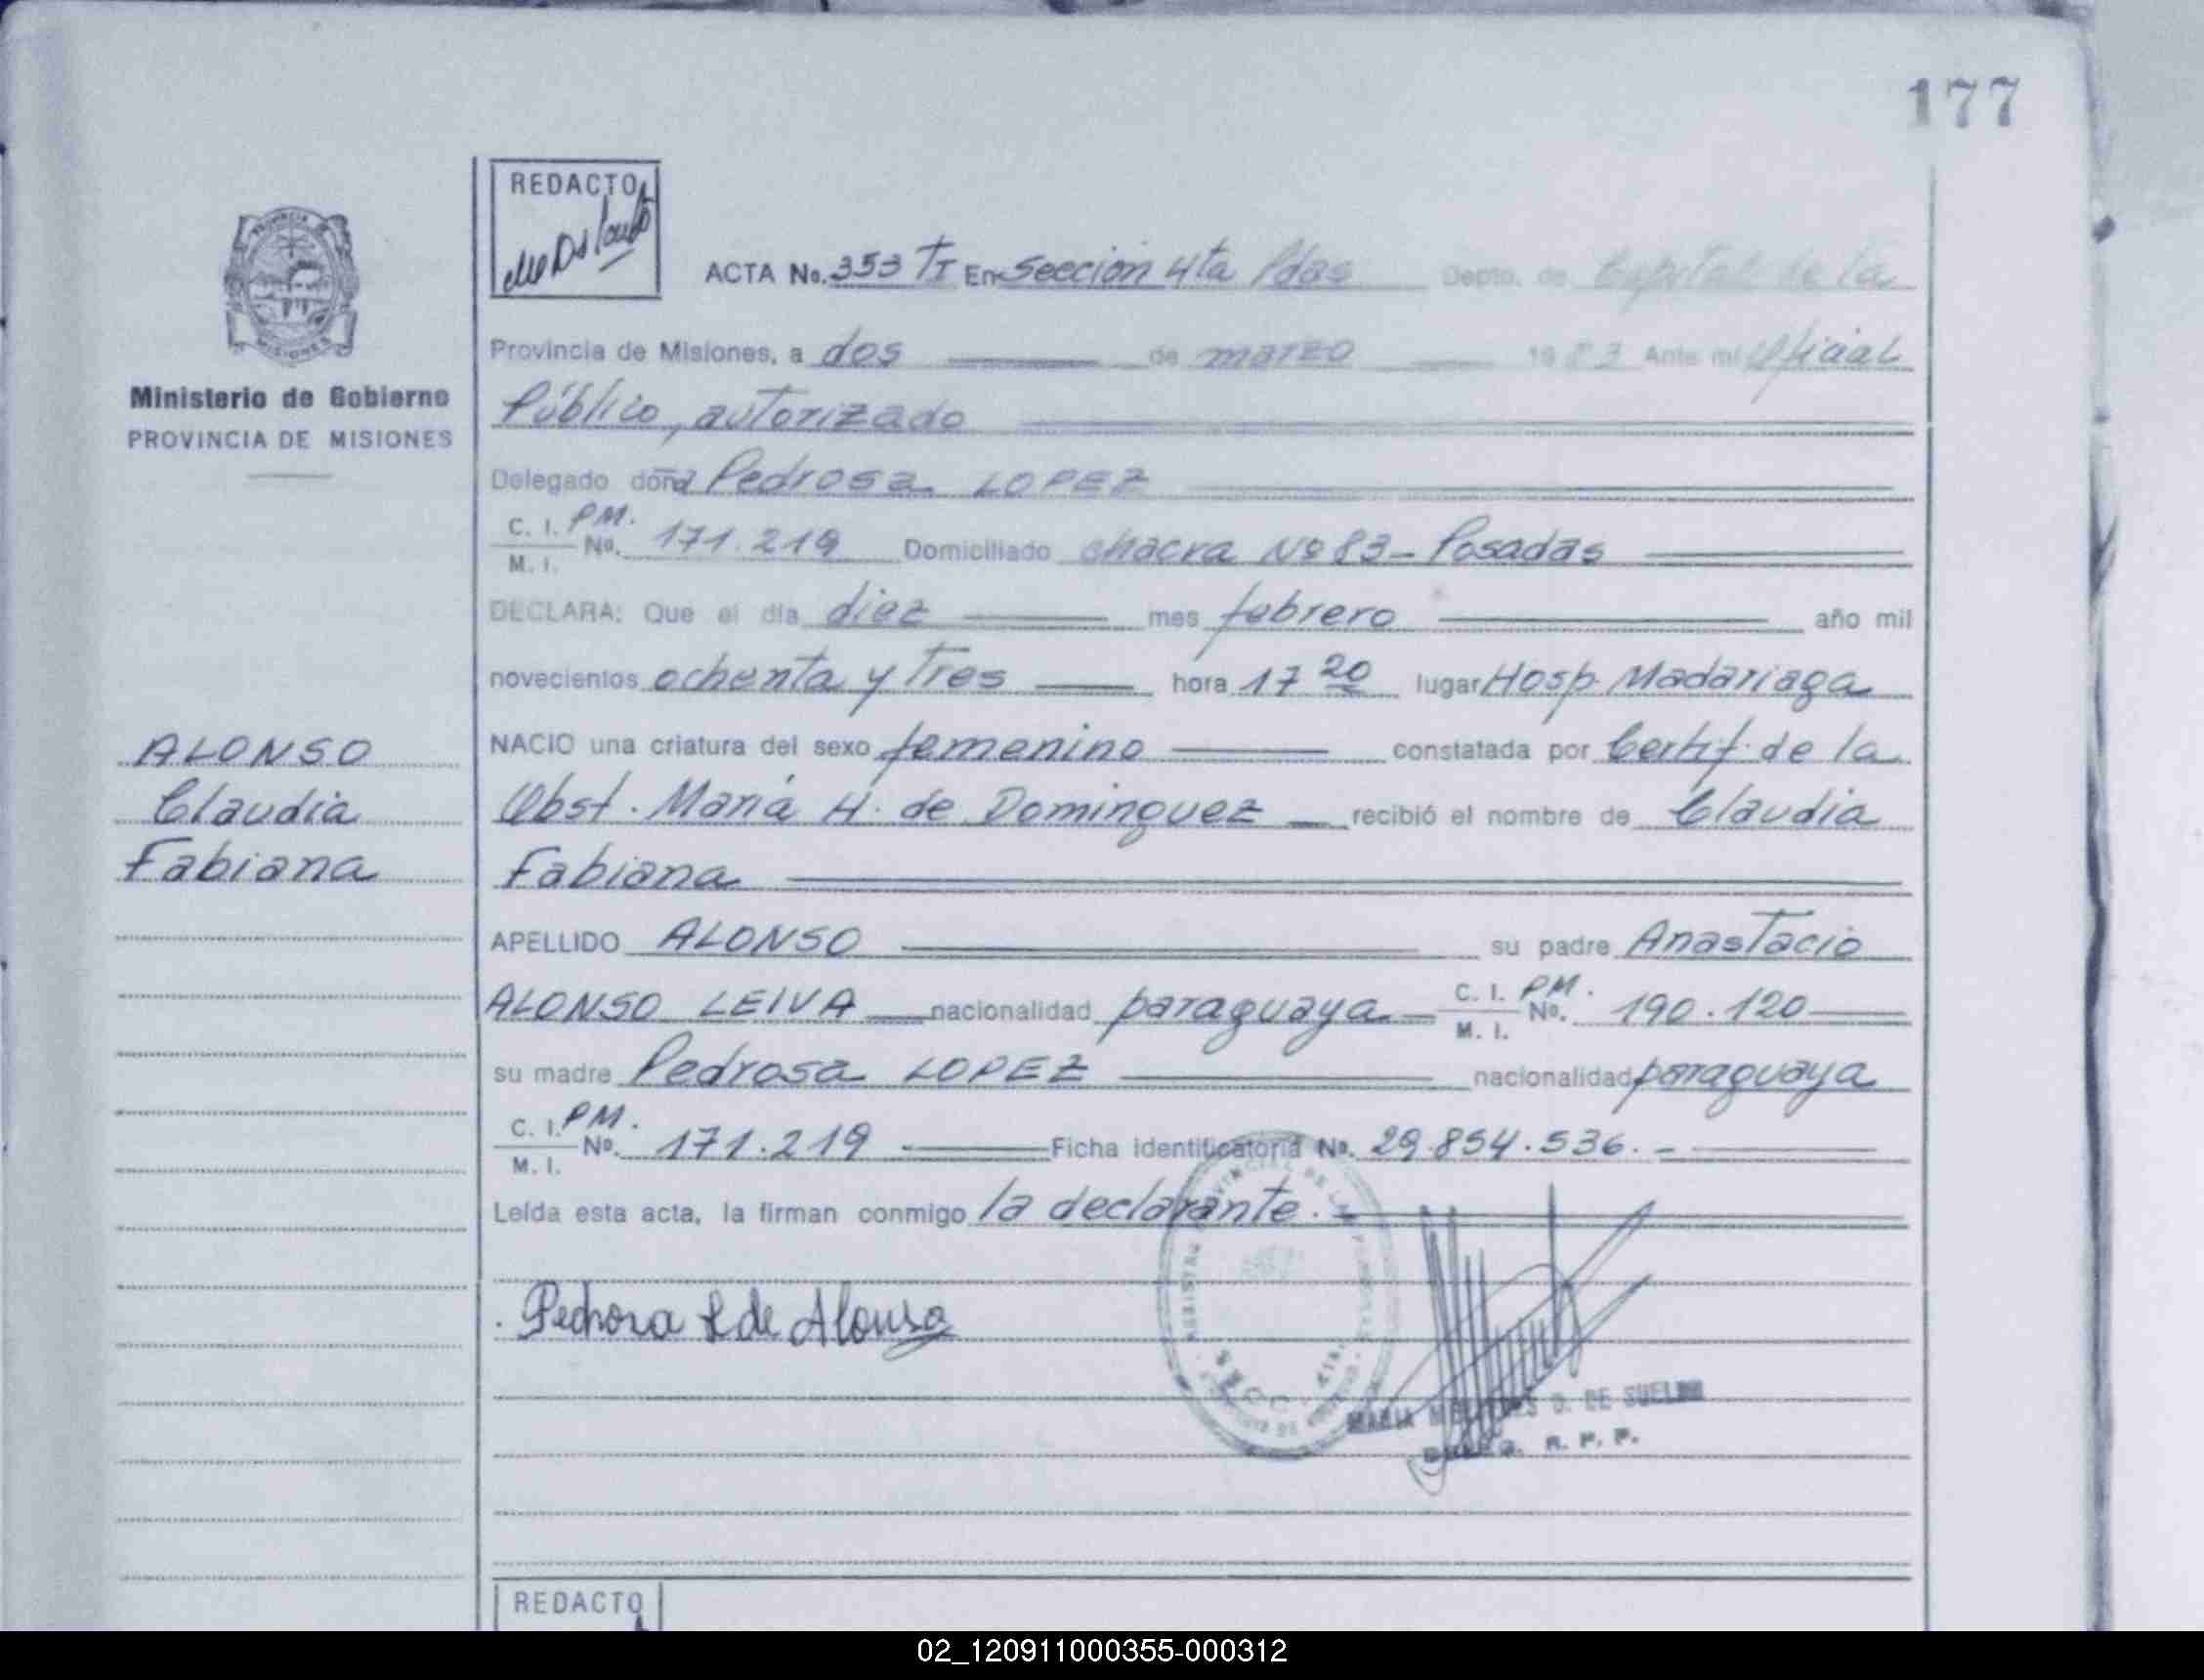 177
REDACTO
ACTA No. 353 TI En Sección 4ta Pdas Depto. de Capital de la
Provincia de Misiones, a dos de marzo 1983 Ante mi Oficial
Público, autorizado
Ministerio de Gobierno
PROVINCIA DE MISIONES
Delegado doña Pedrosa LOPEZ
C. I. PM.
M. I. No. 171.219 Domiciliado chacra Nº 83 - Posadas
DECLARA: Que el día diez mes febrero año mil
novecientos ochenta y Tres hora 17 20 lugar Hosp. Madariaga
ALONSO
Claudia
Fabiana
NACIO una criatura del sexo femenino constatada por Certif. de la
Obst. María H. de Dominguez recibió el nombre de Claudia
Fabiana
APELLIDO ALONSO su padre Anastacio
ALONSO LEIVA nacionalidad paraguaya C. I. PM.
M. I. No. 190.120
su madre Pedrosa LOPEZ nacionalidad paraguaya
C. I. PM.
M. I. No. 171.219 Ficha identificatoria No. 29.854.536.-
Leída esta acta, la firman conmigo la declarante.
Pedrosa L de Alonso
MARIA D. DE
R. P. P.
REDACTO
02_120911000355-000312